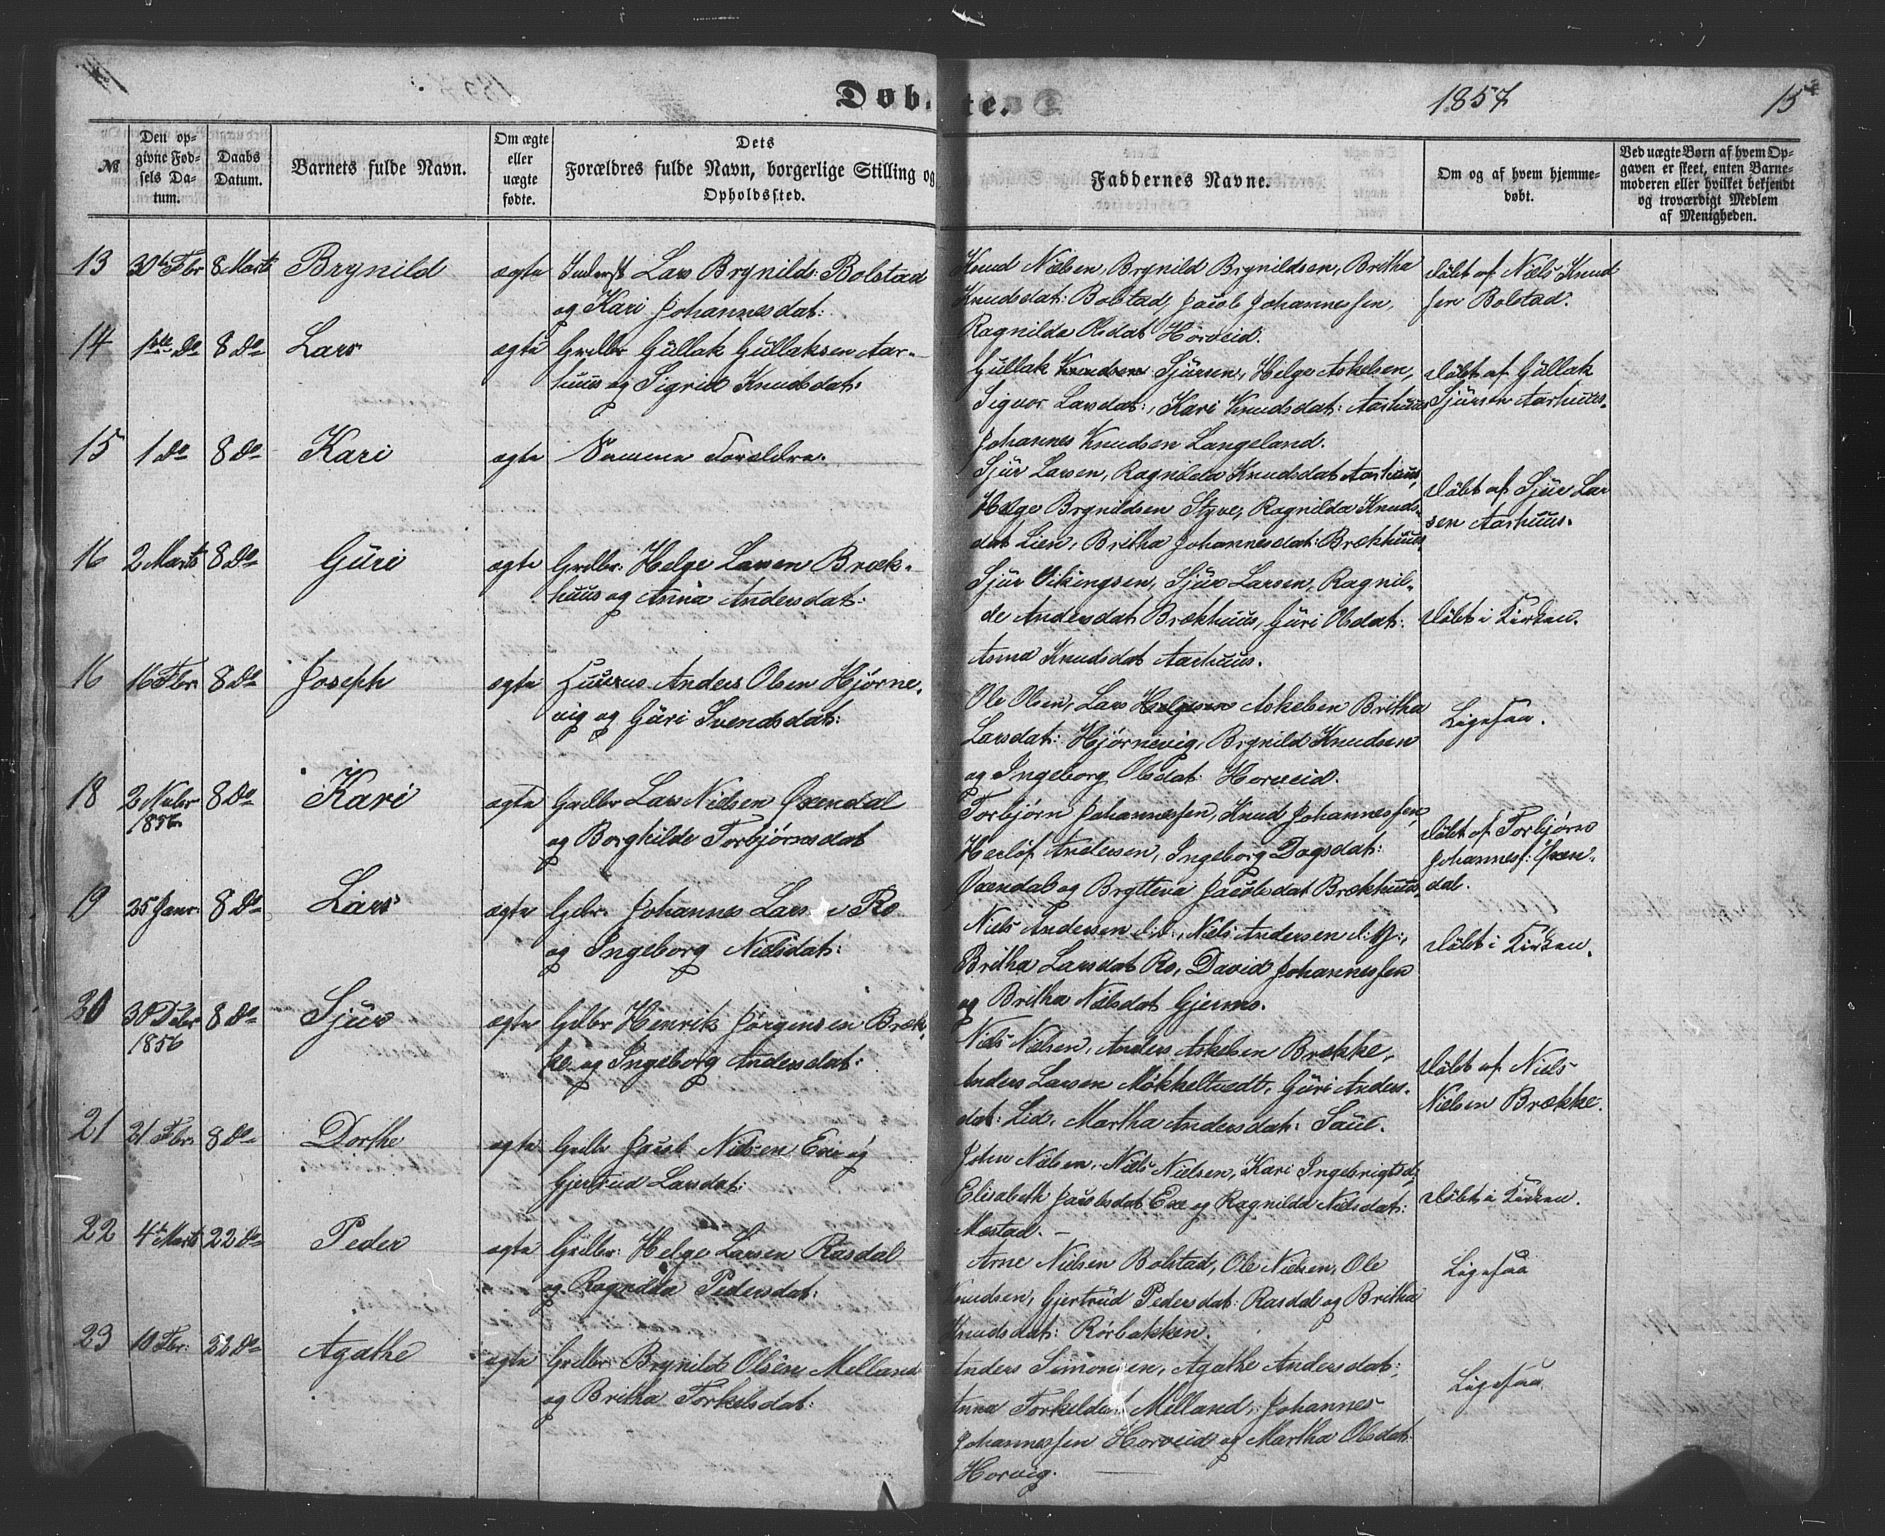 Døbte.
1857
15
№
Den opgivne Fødsels Datum.
Daabs Datum.
Barnets fulde Navn.
Om ægte eller uægte fødte.
Dets Forældres fulde Navn, borgerlige Stilling og Opholdssted.
Faddernes Navne.
Om og af hvem hjemmedøbt.
Ved uægte Børn af hvem Opgaven er skeet, enten Barnemoderen eller hvilket bekjendt og troværdigt Medlem af Menigheden.
13 30 Fbr 8 Marts Brynild ægte Inderst Lars Brynilds: Bolstad
og Kari Johannesdat:
Knud Nielsen, Brynild Brynildsen, Britha
Knudsdat: Bolstad, Jacob Johannessen,
Ragnilda Olsdat Horveid.
Döbt af Niels Knud
sen Bolstad.
14 1ste Do 8 Do Lars ægte Grdbr Güllak Güllaksen Aar-
huus og Sigrid Knudsdat:
Güllak Knudsen Sjürsen, Helge Askelsen,
Sigvor Larsdat:, Kari Knudsdat: Aarhuus
Johannes Knudsen Langeland.
Döbt af Güllak
Sjürsen Aarhuus.
15 1 Do 8 Do Kari ægte Samme Forældre.
Sjür Larsen, Ragnilda Knudsdat Aarhuus,
Helge Brynildsen Styve, Ragnilda Knuds-
dat Lien, Britha Johannesdat: Brækhuus
Döbt af Sjür Lar
sen Aarhuus.
16 2 Marts 8 Do Güri ægte Grdbr: Helge Larsen Bræk-
huus og Anna Andersdat:
Sjür Vikingsen, Sjür Larsen, Ragnil-
de Andersdat Brækhuus, Güri Olsdat:
Anna Knudsdat Aarhuus.
Döbt i Kirken.
16 16 Fbr. 8 Do Joseph ægte Huusm Anders Olsen Hjørne-
vig og Güri Svendsdat:
Ole Olsen, Lars Helgesen Askelsen Britha
Larsdat: Hjørnevig, Brynild Knudsen
og Ingeborg Olsdat: Horveid.
Ligesaa.
18 2 Nvbr 1856 8 Do Kari ægte Grdbr Lars Nielsen Øxendal
og Borghilde Torbjørnsdat
Torbjörn Johannessen, Knud Johannessen,
Herlöf Andersen, Ingeborg Dagsdat:
Øxendal og Brytteva Jacobsdat Brækhuus
Döbt af Torbjörn
Johanness: Øxen-
dal.
19 25 Janr. 8 Do Lars ægte Gdbr. Johannes Larsen Ro
og Ingeborg Nielsdat:
Niels Andersen d:Æ:, Niels Andersen d:Y:,
Britha Larsdat Ro, David Johannessen
og Britha Nielsdat Gjerme.
Döbt i Kirken.
20 30 Dcbr 1856 8 Do Sjur ægte Gdbr Henrik Jörgensen Bræk-
ke og Ingeborg Andersdat:
Niels Nielsen, Anders Askelsen Brække,
Anders Larsen Mökkeltvedt, Güri Anders-
dat: Lid, Martha Andersdat: Saüe.
Döbt af Niels
Nielsen Brække.
21 21 Fbr. 8 Do Dorthe ægte Grdbr Jacob Nielsen Exe og
Gjertrud Larsdat:
John Nielsen, Niels Nielsen, Kari Ingebrigtsd,
Elisabeth Jacobsdat: Exe og Ragnilda Nielsdat:
Mestad. —
Döbt i Kirken.
22 4 Marts 22 Do Peder ægte Grdbr: Helge Larsen Rasdal
og Ragnilda Pedersdat:
Arne Nielsen Bolstad, Ole Nielsen, Ole
Knudsen, Gjertrüd Pedersdat: Rasdal og Britha
Knudsdat: Rörbakken.
Ligesaa
23 10 Fbr: 22 Do Agathe ægte Grdbr Brynild Olsen Melland
og Britha Torkelsdat:
Anders Simonsen, Agathe Andersdat:
Anna Torkeldat Melland, Johannes
Johannessen Horveid og Martha Olsdat:
Horvig.
Ligesaa